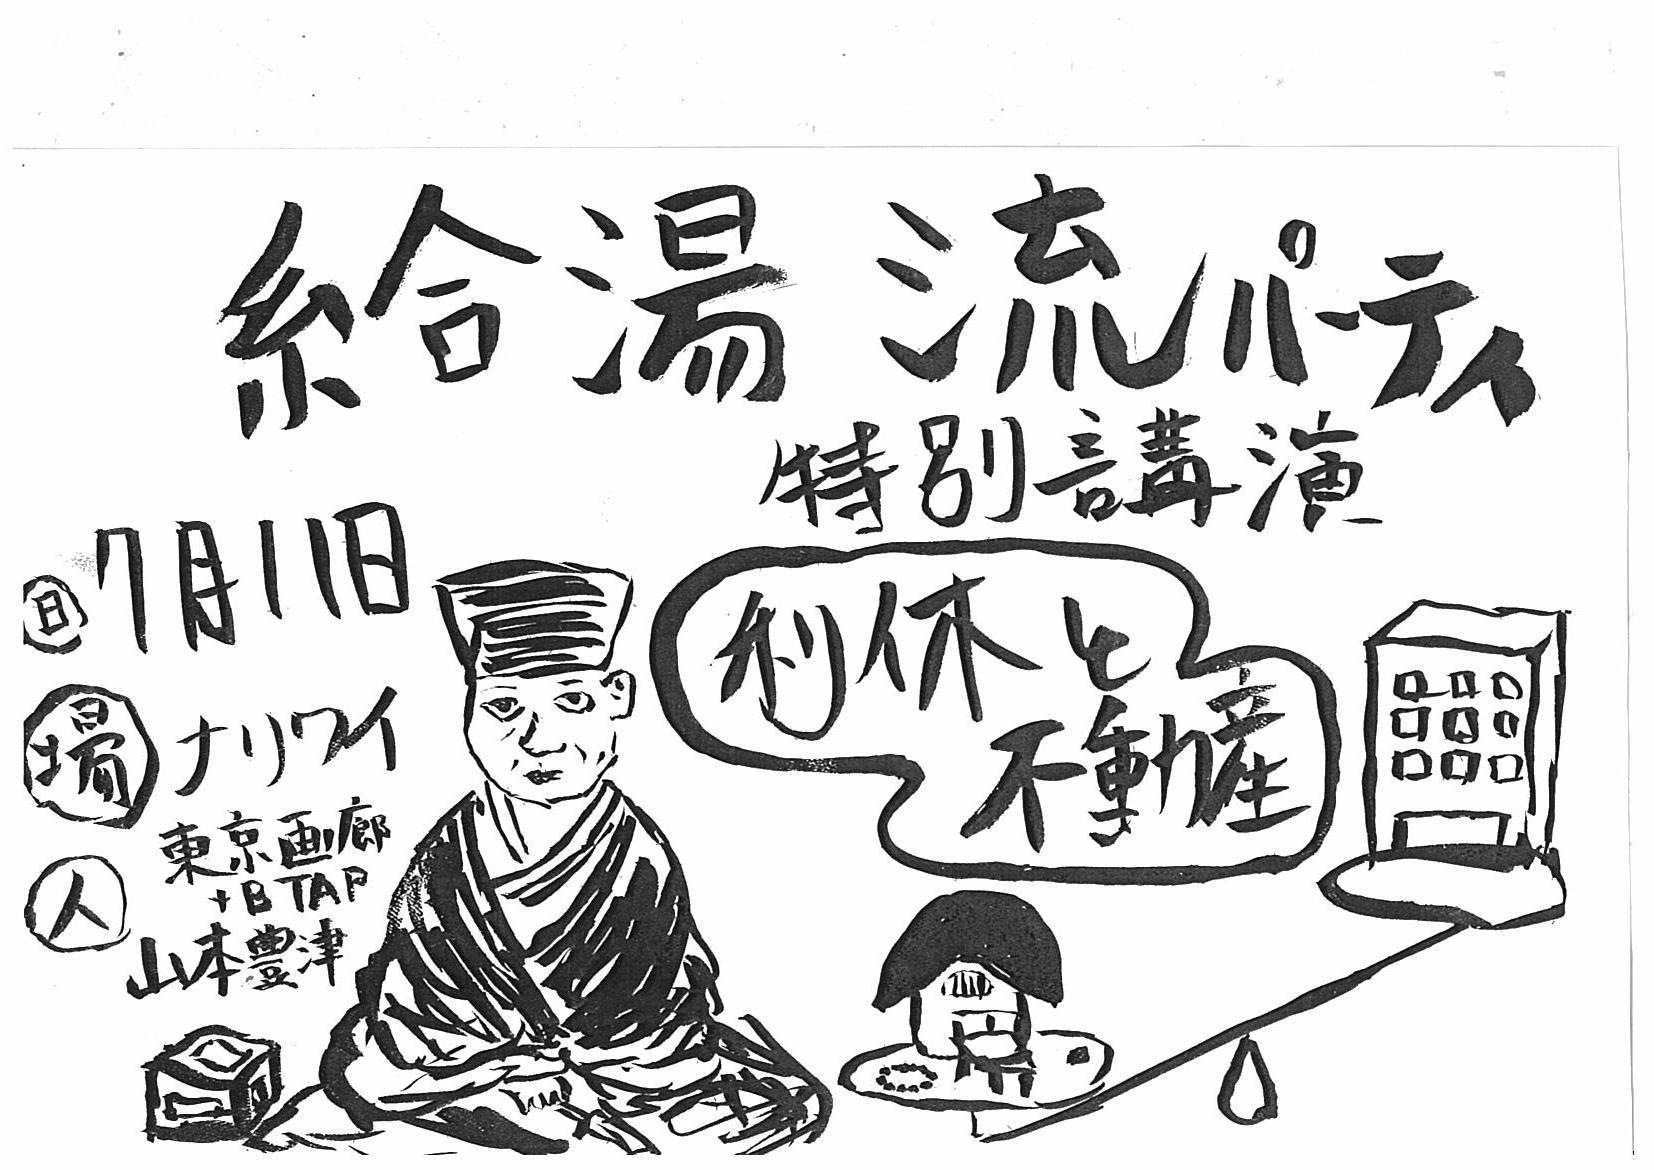 給湯流パーティ
特別講演
7月11日
㊐
利休と
不動産
場 ナリワイ
人 東京画廊
+BTAP
山本豊津